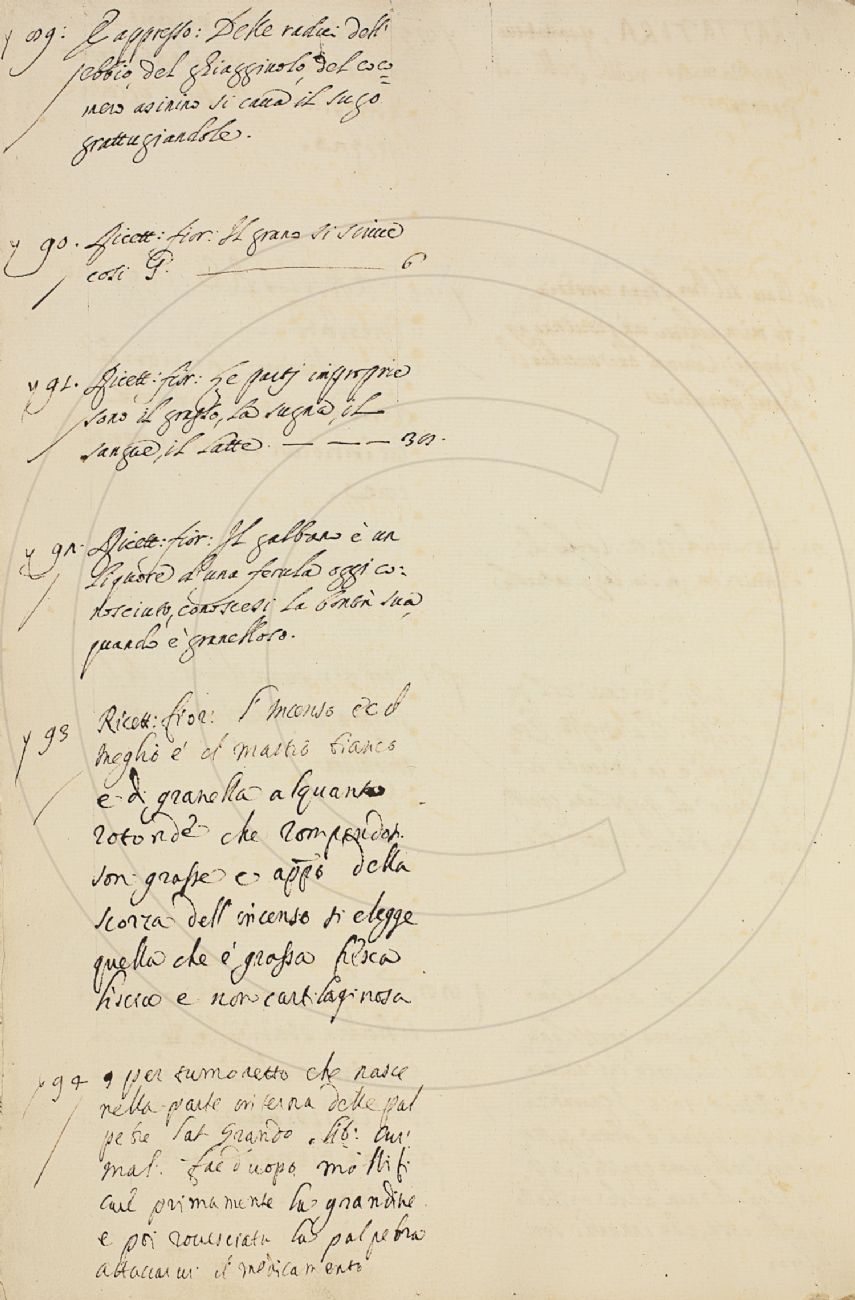 y 89: E appresso: Delle radici dell'
ebbio, del ghiaggiuolo, del coco=
mero asinino si cava il sugo
grattugiandole.
y 90. Ricett: fior: Il grano si scrive
così G. 6
y 91. Ricett: fior: Le parti improprie
sono il grasso, la sugna, il
sangue, il latte. — — — 38.
y 92. Ricett: fior: Il galbano è un
liquore d'una ferula oggi co=
nosciuto, conoscesi la bontà sua
quando è granelloso.
y 93 Ricett: fior: l'incenso
meglio è il mastio bianco
e di granella alquanto
rotonde che rompendosi
son grasse e app̃o della
scorza dell'incenso si elegge
quella che è grossa fresca
liscia e non cartilaginosa
y 94 9 per tumoretto che nasce
nella parte interna delle pal
pebre lat Grando. lib: cur:
mal. fae d'uopo mollifi
care primamente la grandine
e poi rovesciata la palpebra
attaccarvi il medicamento